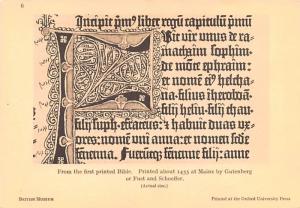 6
Incipit prim⁹ liber regū capitulū primū
Fuit vir unus de ra-
mathaim sophim·
de mōte ephraim:
et nomē ei⁹ helcha-
na·filij iheroboā·
filij heliu·filij thau·
filij suph·effrateus:et habuit duas ux-
ores:nomē uni anna·et nomē scde
fenenna. Fueruntq; fenenne filij:anne
From the first printed Bible. Printed about 1455 at Mainz by Gutenberg
or Fust and Schoeffer.
(Actual size.)
British Museum
Printed at the Oxford University Press